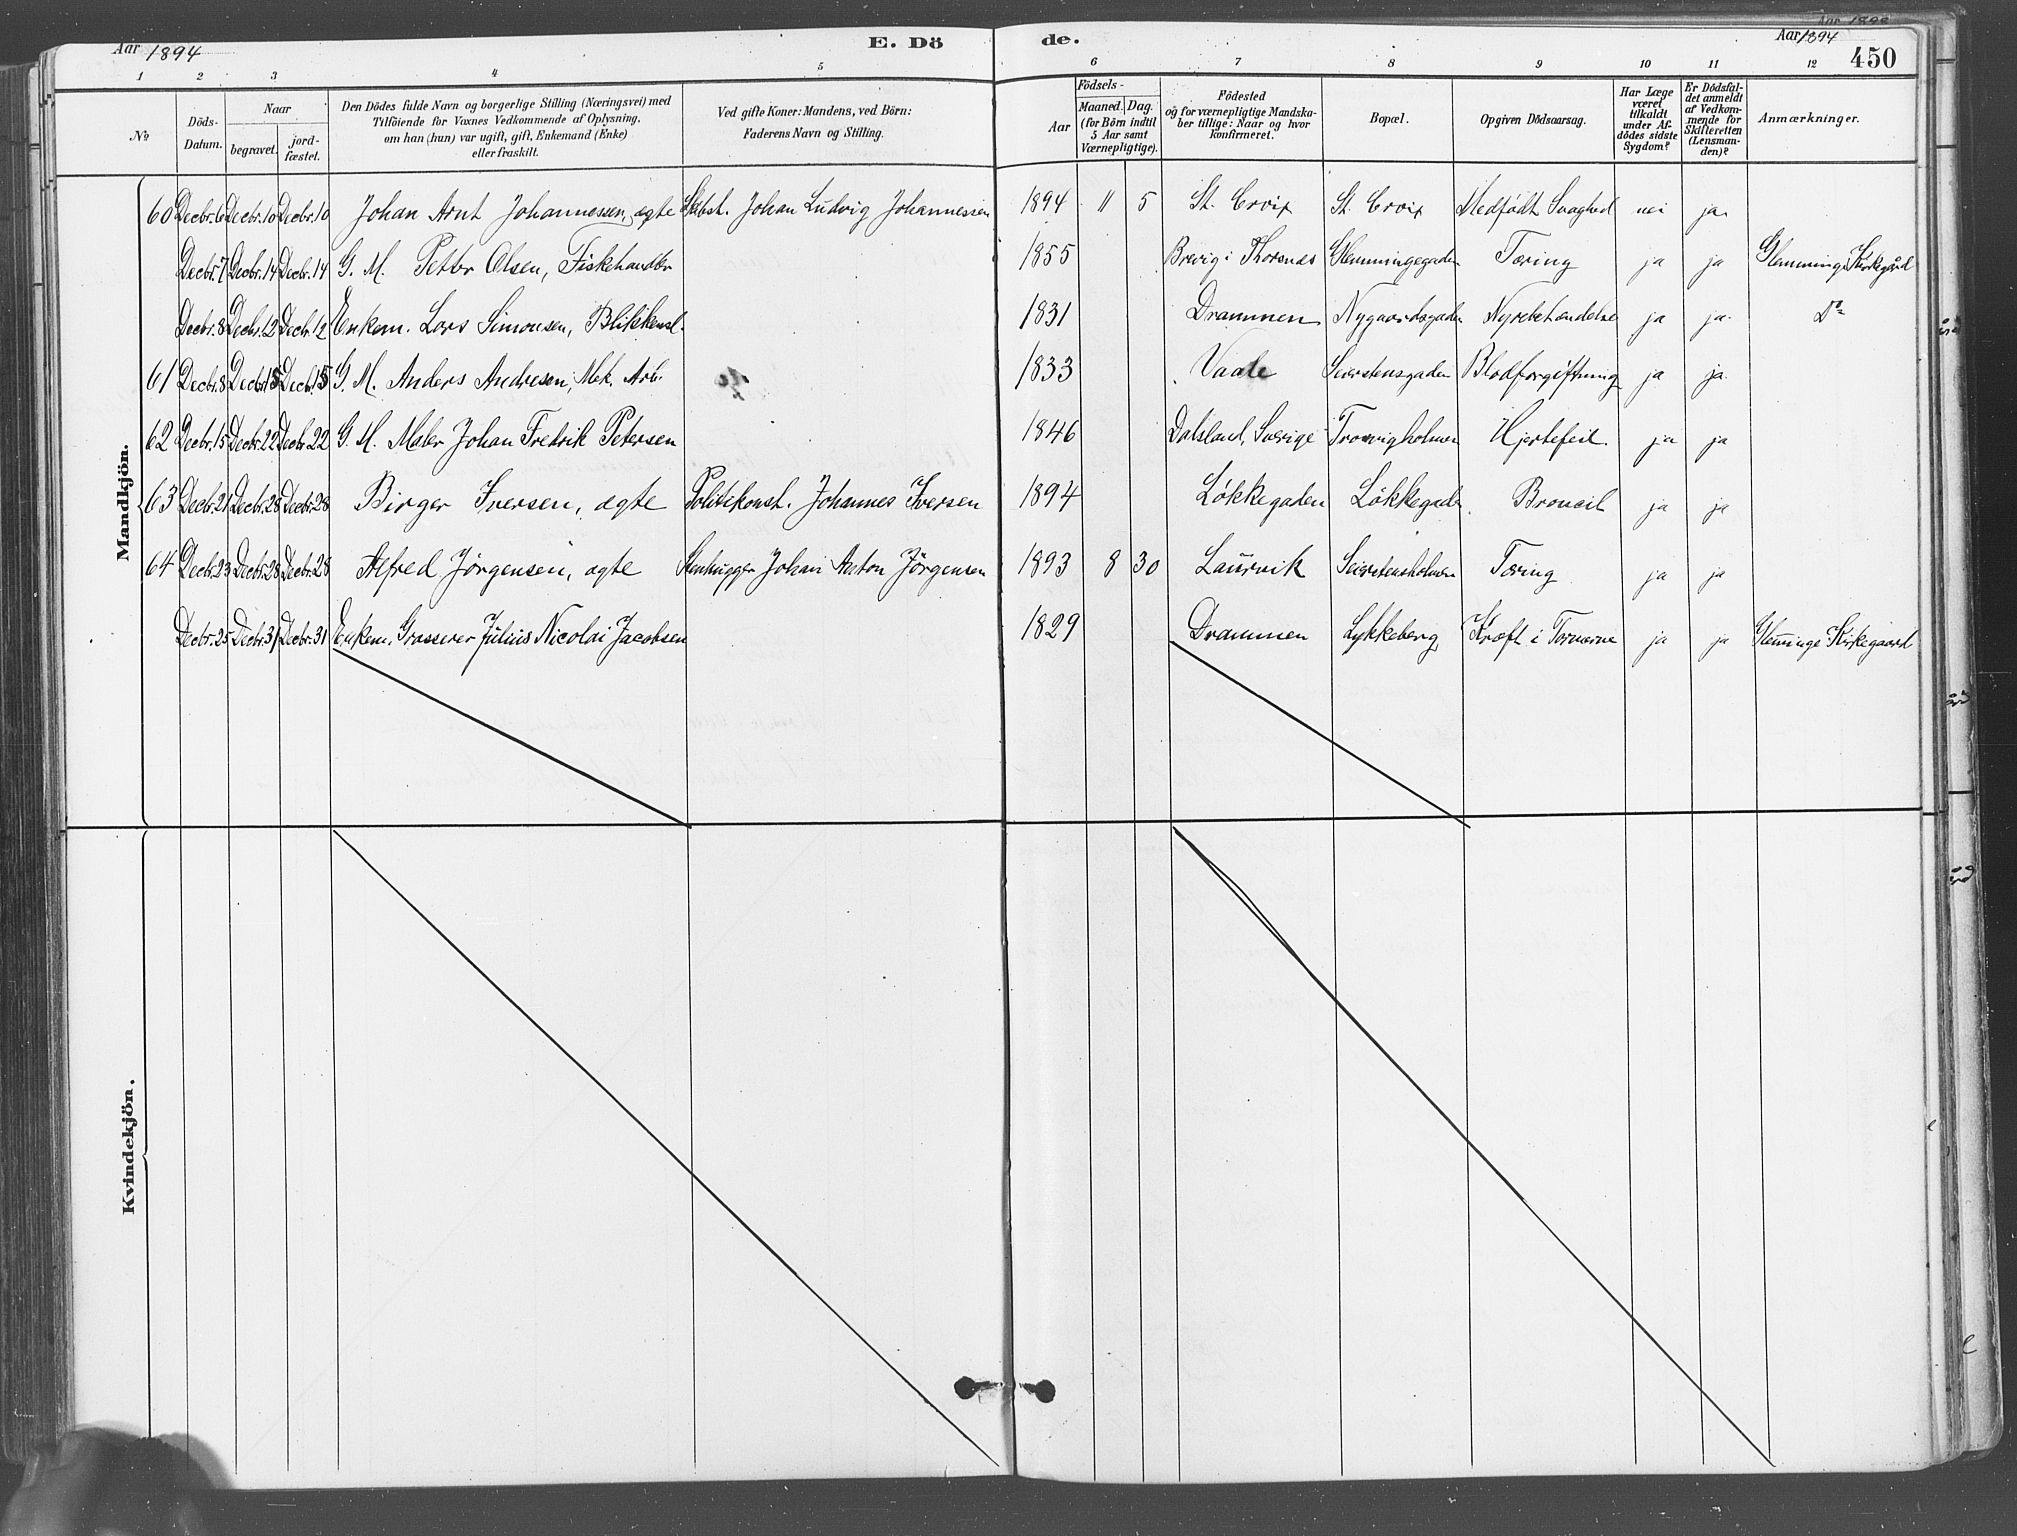 Aar 1894
E. Dö
1 2 3 4 5
№
Döds-Datum.
Naar
begravet.
jord-fæstet.
Den Dödes fulde Navn og borgerlige Stilling (Næringsvei) med
Tilföiende for Voxnes Vedkommende af Oplysning,
om han (hun) var ugift, gift, Enkemand (Enke)
eller fraskilt.
Ved gifte Koner: Mandens, ved Börn:
Faderens Navn og Stilling.
de.
Aar 1894
450
6 7 8 9 10 11 12
Födsels-
Aar
Maaned. Dag.
(for Börn indtil
5 Aar samt
Værnepligtige).
Födested
og for værnepligtige Mandska-
ber tillige: Naar og hvor
konfirmeret.
Bopæl.
Opgiven Dödsaarsag.
Har Læge
været
tilkaldt
under Af-
dödes sidste
Sygdom?
Er Dödsfal-
det anmeldt
af Vedkom-
mende for
Skifteretten
(Lensman-
den)?
Anmærkninger.
Mandkjön.
60 Decbr. 6 Decbr. 10 Decbr. 10 Johan Arnt Johannessen, ægte Johan Ludvig Johannessen 1894 11 5 St. Croix St. Croix Medfødt Svaghed nei ja
Decbr. 7 Decbr. 14 Decbr. 14 G. M. Petter Olsen, Fiskehandler 1855 Brevig i Glemmingegaden Tæring ja ja Glemminge Kirkegård
Decbr. 8 Decbr. 12 Decbr. 12 Enkem. Lars Simonsen, Blikkensl. 1831 Drammen Nygaardsgaden Nyrebetændelse ja ja Do
61 Decbr. 8 Decbr. 15 Decbr. 15 G. M. Anders Andresen, Mek. Arb. 1833 Vaale Seierstensgaden Blodforgiftning ja ja
62 Decbr. 15 Decbr. 22 Decbr. 22 G. M. Maler Johan Fredrik Petersen 1846 Dalsland, Sverige Trosvigholmen Hjertefeil ja ja
63 Decbr. 21 Decbr. 28 Decbr. 28 Birger Iversen, ægte Politikonst. Johannes Iversen 1894 Løkkegaden Løkkegaden ja ja
64 Decbr. 23 Decbr. 28 Decbr. 28 Alfred Jørgensen, ægte Stenhugger Johan Anton Jørgensen 1893 8 30 Laurvik Seierstensholmen Tæring ja ja
Decbr. 25 Decbr. 31 Decbr. 31 Enkem. Grosserer Julius Nicolai Jacobsen 1829 Drammen Lykkeberg Kræft i Tarmene ja ja Glemminge Kirkegaard
Kvindekjön.